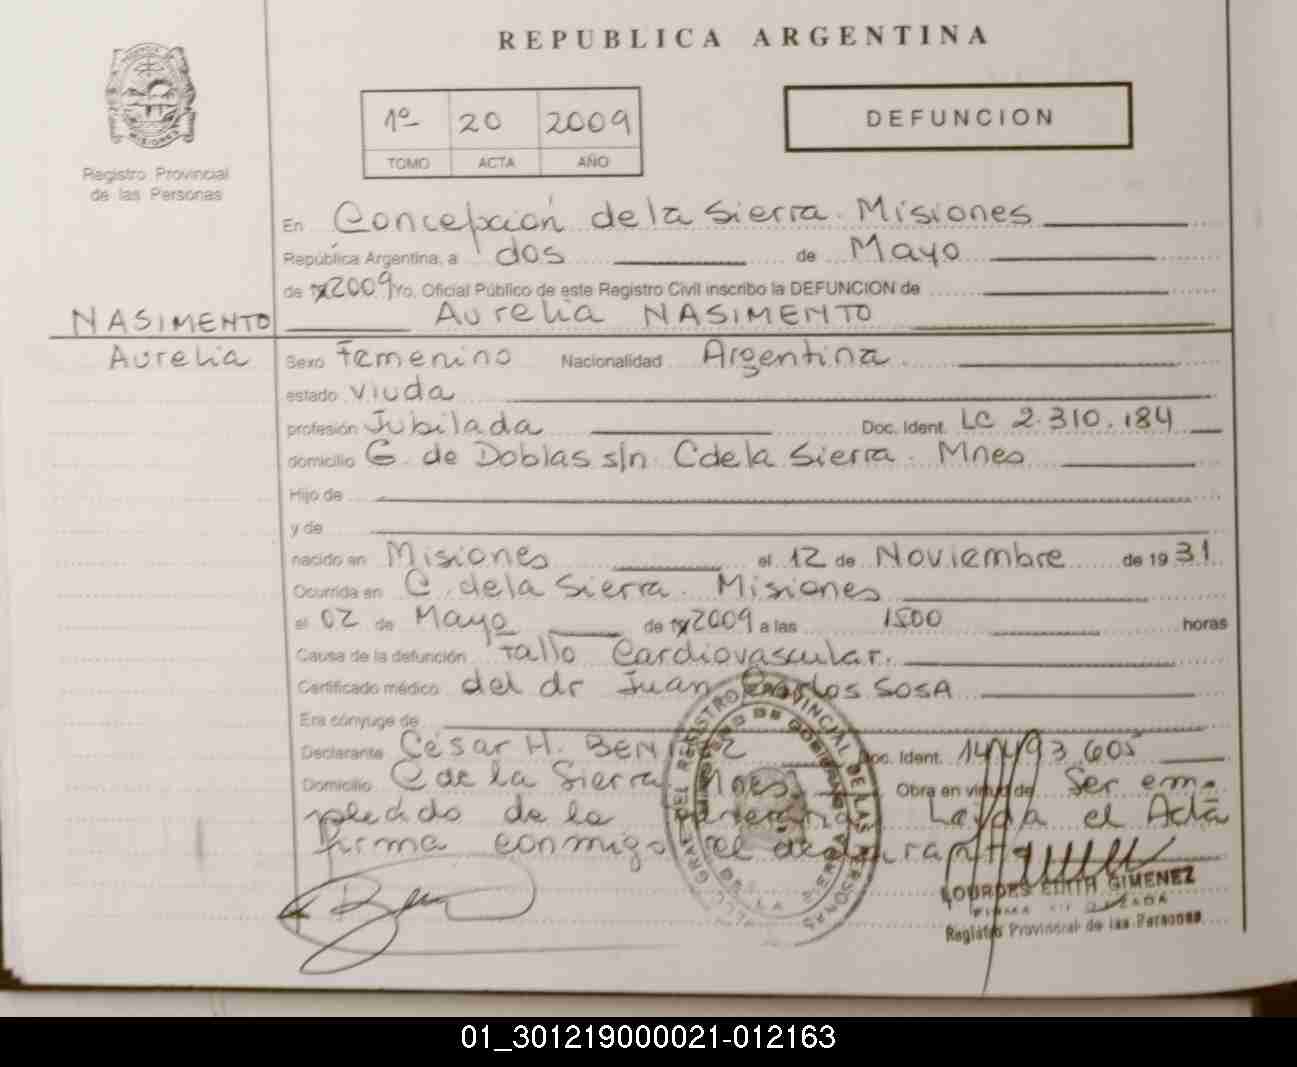 REPUBLICA ARGENTINA
1º 20 2009
TOMO ACTA AÑO
DEFUNCION
Registro Provincial
de las Personas
En Concepción de la Sierra. Misiones
República Argentina, a dos de Mayo
de 2009 Yo, Oficial Público de este Registro Civil inscribo la DEFUNCION de
NASIMENTO Aurelia NASIMENTO
Aurelia Sexo Femenino Nacionalidad Argentina.
estado Viuda
profesión Jubilada Doc. Ident. LC 2.310.184
domicilio G. de Doblas s/n. C de la Sierra. Mnes
Hijo de
y de
nacido en Misiones el 12 de Noviembre de 1931.
Ocurrida en C. de la Sierra. Misiones
el 02 de Mayo de 2009 a las 1500 horas
Causa de la defunción Fallo Cardiovascular.
Certificado médico del dr Juan Carlos SOSA
Era cónyuge de
Declarante César H. Doc. Ident. 14.493.605
Domicilio C de la Sierra Mnes Obra en virtud de Ser em-
pleado de la Leida el Acta
firma conmigo el declarante
LOURDES EDITH GIMENEZ
FIRMA
Registro Provincial de las Personas
01_301219000021-012163